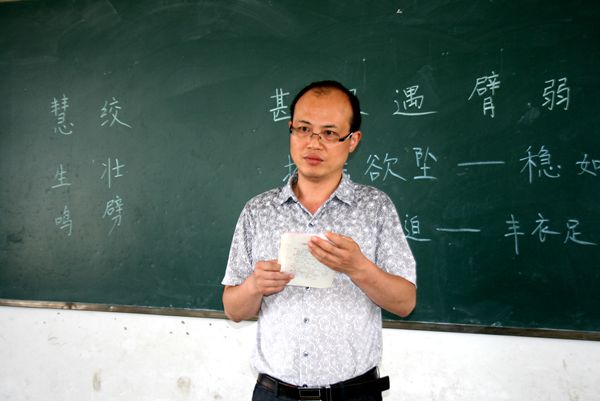 慧 绞
生 壮
鸣 劈
甚 遇 臂 弱
欲坠 — 稳如
迫 — 丰衣足